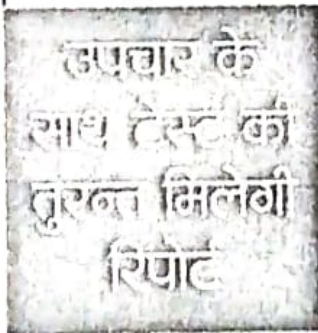 उपचार के
साथ टेस्ट की
तुरन्त मिलेगी
रिपोर्ट